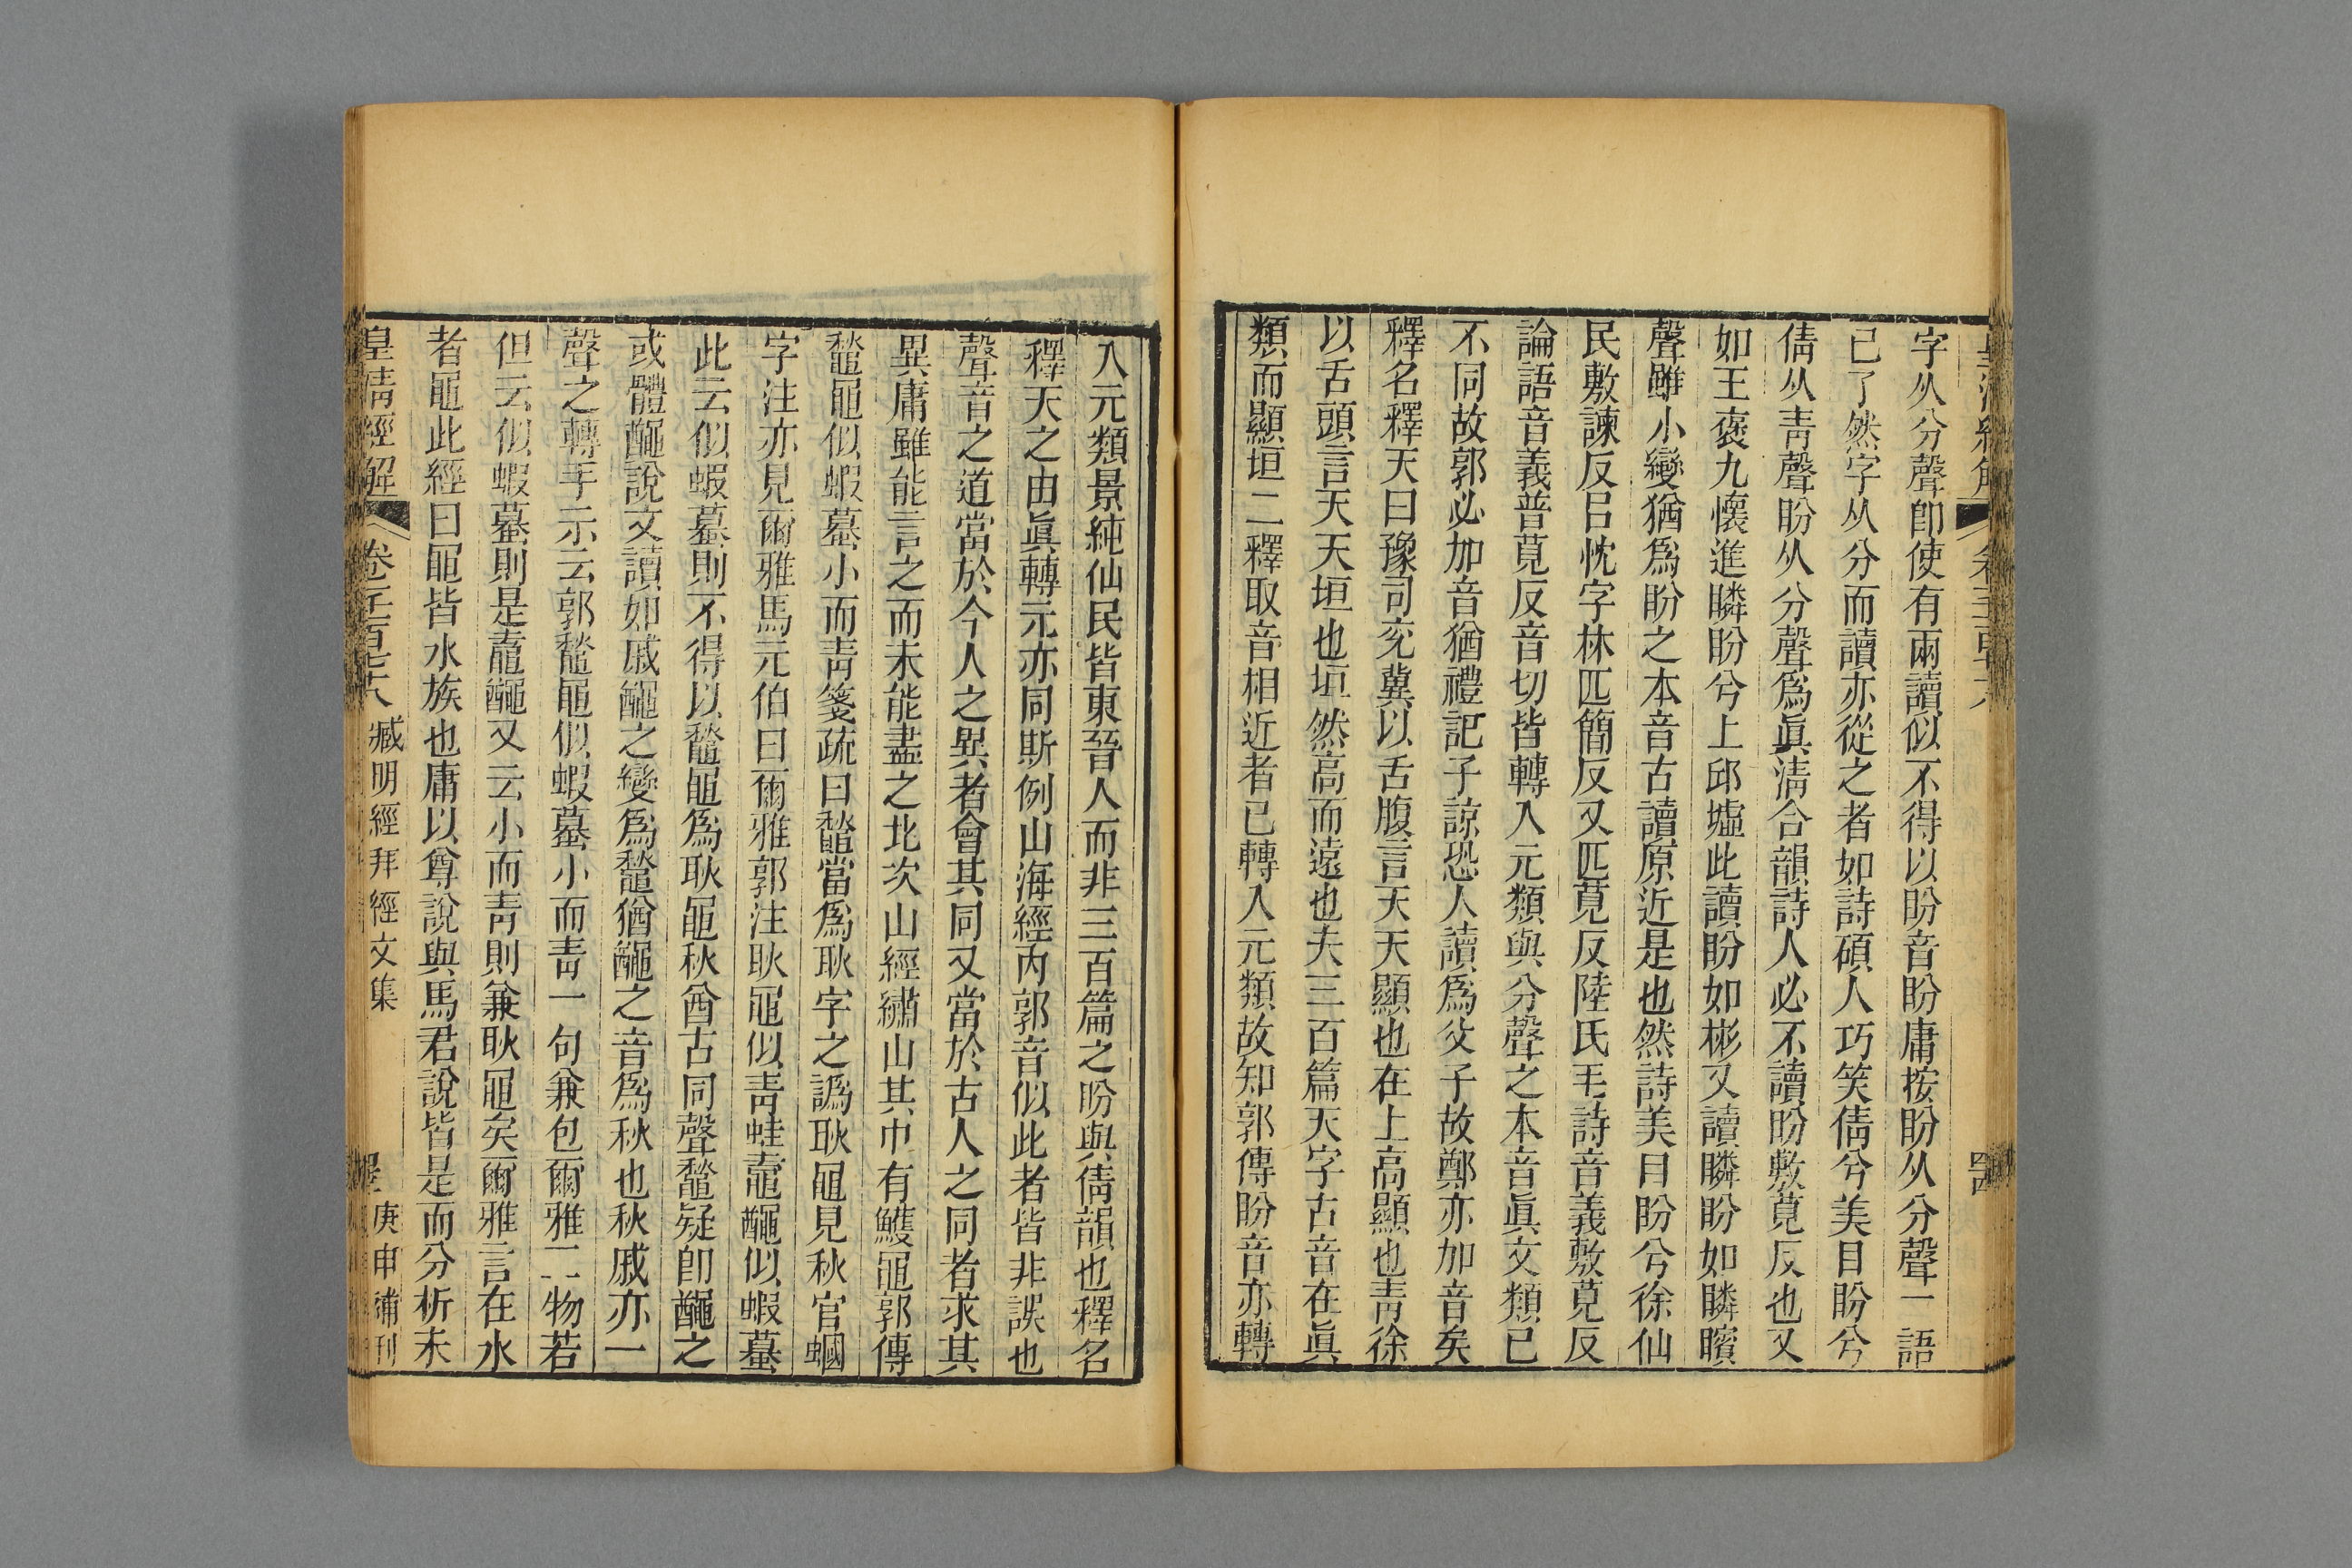 字从分聲卽使有兩讀似不得以盼音盼庸按盼从分聲一語
已了然字从分而讀亦從之者如詩碩人巧笑倩兮美目盼兮
倩从靑聲盼从分聲爲眞淸合韻詩人必不讀盼敷莧反也又
如王褒九懷進瞵盼兮上邱墟此讀盼如彬又讀瞵盼如瞵矉
聲雖小變猶爲盼之本音古讀原近是也然詩美目盼兮徐仙
民敷諫反呂忱字林匹簡反又匹莧反陸氏毛詩音義敷莧反
論語音義普莧反音切皆轉入元類與分聲之本音眞文類已
不同故郭必加音猶禮記子諒恐人讀爲父子故鄭亦加音矣
釋名釋天曰豫司兖冀以舌腹言天天顯也在上高顯也靑徐
以舌頭言天天垣也垣然高而遠也夫三百篇天字古音在眞
類而顯垣二釋取音相近者已轉入元類故知郭傳盼音亦轉
四
入元類景純仙民皆東晉人而非三百篇之盼與倩韻也釋名
釋天之由眞轉元亦同斯例山海經內郭音似此者皆非誤也
聲音之道當於今人之異者會其同又當於古人之同者求其
異庸雖能言之而未能盡之北次山經繡山其中有鱯黽郭傳
鼇黽似蝦蟇小而靑箋疏曰鼇當爲耿字之譌耿黽見秋官蟈
字注亦見爾雅馬元伯曰爾雅郭注耿黽似靑蛙鼃䵷似蝦蟇
此云似蝦蟇則不得以鼇黽爲耿黽秋酋古同聲鼇疑卽䵷之
或體䵷說文讀如戚䵷之變爲鼇猶䵷之音爲秋也秋戚亦一
聲之轉手示云郭鼇黽似蝦蟇小而靑一句兼包爾雅二物若
但云似蝦蟇則是鼃䵷又云小而靑則兼耿黽矣爾雅言在水
者黽此經曰黽皆水族也庸以尊說與馬君說皆是而分析未
皇淸經解 卷千一百七十八 臧明經拜經文集 庚申補刊